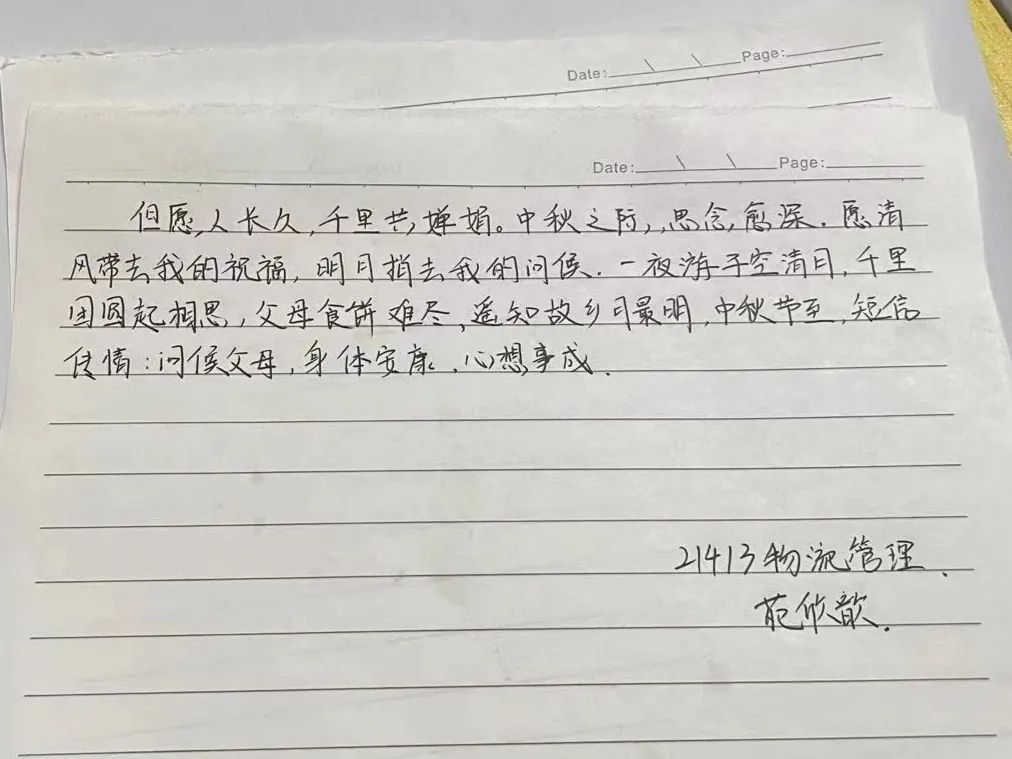 Date: \ \ Page:
Date: \ \ Page:
但愿人长久,千里共婵娟。中秋之际,思念愈深.愿清
风带去我的祝福,明月捎去我的问候.一夜游子空清月,千里
团圆起相思,父母食饼难尽,遥知故乡月最明,中秋节至,短信
传情:问候父母,身体安康.心想事成.
21413物流管理.
范欣歆.